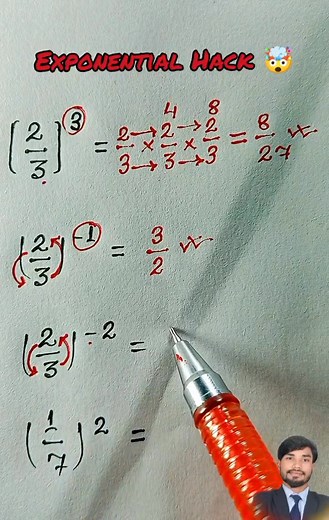 Exponential Hack 🤯
(2/3)^3 = 2/3 × 2/3 × 2/3 = 8/27
4 8
(2/3)^-1 = 3/2
(2/3)^-2 =
(1/7)^2 =